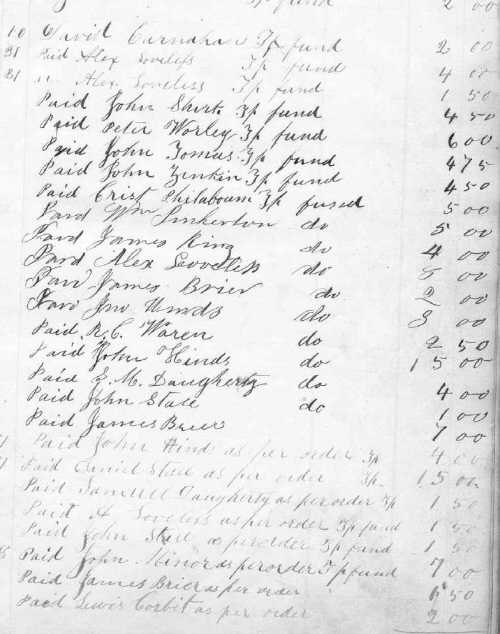 3p fund 2 00
10 David Carnahan 3p fund 2 00
31 Paid Alex Loveless 3p fund 4 00
31 " Alex Loveless 3p fund 1 50
Paid John Shirk 3p fund 4 50
Paid Peter Worley 3p fund 6 00
Paid John Zomas 3p fund 4 75
Paid John Zinkin 3p fund 4 50
Paid Crist Philabaum 3p fused 5 00
Paid Wm Linkerton do 5 00
Paid James King do 4 00
Paid Alex Loveless do 8 00
Paid James Brier do 2 00
Paid Jno Hinds do 3 00
Paid R. C. Waren do 2 50
Paid John Hinds do 15 00
Paid E. M. Daugherty do
Paid John State do 4 00
Paid James Brier 1 00
7 00
Paid John Hinds as per order 3p 4 00
Paid Daniel Steel as per order 3p 15 00
Paid Samuel Daugherty as per order 3p 1 50
Paid A Loveless as per order 3p fund 1 50
Paid John Steel as per order 3p fund 1 50
Paid John Minor as per order 3p fund 7 00
Paid James Brier as per order 6 50
Paid Lewis Corbit as per order 2 00